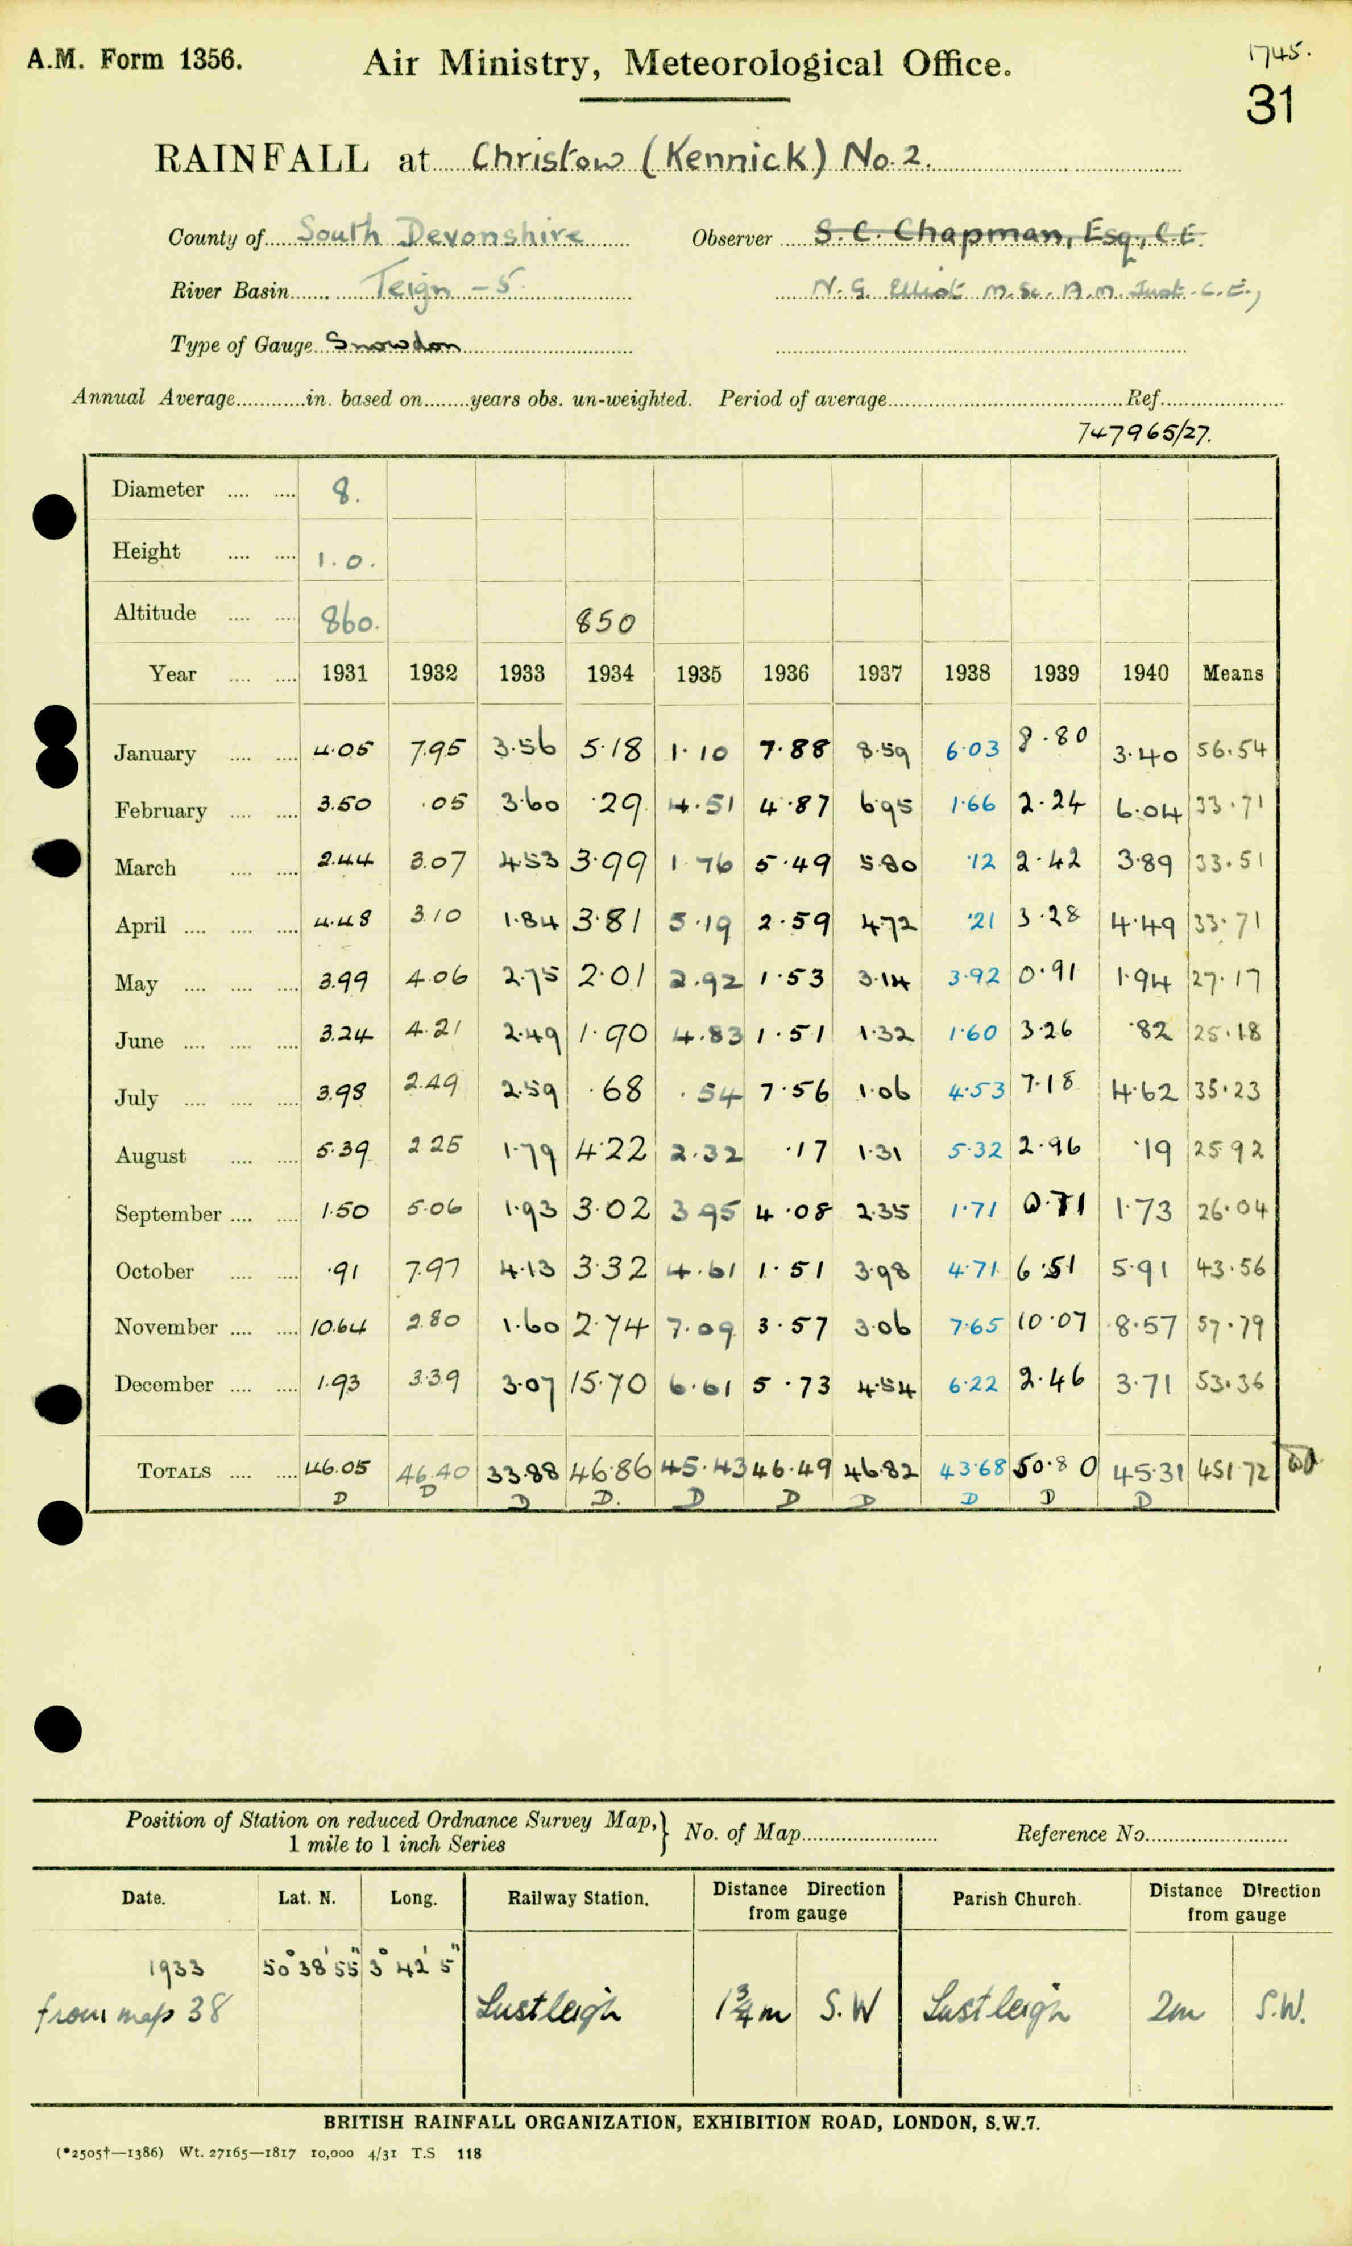 A.M. Form 1356.
Air Ministry, Meteorological Office.
1745.
31
RAINFALL at Christow (Kennick) No. 2.
County of South Devonshire Observer S. C. Chapman, Esq., C.E.
River Basin Teign - 5. N. G. Elliot M.Sc. A.M. Inst. C.E.,
Type of Gauge Snowdon
Annual Average in. based on years obs. un-weighted. Period of average Ref.
747965/27.
Diameter 8.
Height 1. 0.
Altitude 860. 850
Year 1931 1932 1933 1934 1935 1936 1937 1938 1939 1940 Means
January 4.05 7.95 3.56 5.18 1.10 7.88 8.59 6.03 8.80 3.40 56.54
February 3.50 .05 3.60 .29 4.51 4.87 6.95 1.66 2.24 6.04 33.71
March 2.44 3.07 4.53 3.99 1.76 5.49 5.80 .12 2.42 3.89 33.51
April 4.48 3.10 1.84 3.81 5.19 2.59 4.72 .21 3.28 4.49 33.71
May 3.99 4.06 2.75 2.01 2.92 1.53 3.14 3.92 0.91 1.94 27.17
June 3.24 4.21 2.49 1.90 4.83 1.51 1.32 1.60 3.26 .82 25.18
July 3.98 2.49 2.59 .68 .54 7.56 1.06 4.53 7.18 4.62 35.23
August 5.39 2.25 1.79 4.22 2.32 .17 1.31 5.32 2.96 .19 25.92
September 1.50 5.06 1.93 3.02 3.95 4.08 2.35 1.71 0.71 1.73 26.04
October .91 7.97 4.13 3.32 4.61 1.51 3.98 4.71 6.51 5.91 43.56
November 10.64 2.80 1.60 2.74 7.09 3.57 3.06 7.65 10.07 8.57 57.79
December 1.93 3.39 3.07 15.70 6.61 5.73 4.54 6.22 2.46 3.71 53.36
TOTALS 46.05 46.40 33.88 46.86 45.43 46.49 46.82 43.68 50.80 45.31 451.72
D D D D. D D D D D D
Position of Station on reduced Ordnance Survey Map, 1 mile to 1 inch Series } No. of Map Reference No.
Date. Lat. N. Long. Railway Station. Distance Direction from gauge Parish Church. Distance Direction from gauge
1933 50° 38' 55" 3° 42' 5"
from map 38 Lustleigh 1¾ m S.W Lustleigh 2m S.W.
BRITISH RAINFALL ORGANIZATION, EXHIBITION ROAD, LONDON, S.W.7.
(*2505†—1386) Wt. 27165—1817 10,000 4/31 T.S 118